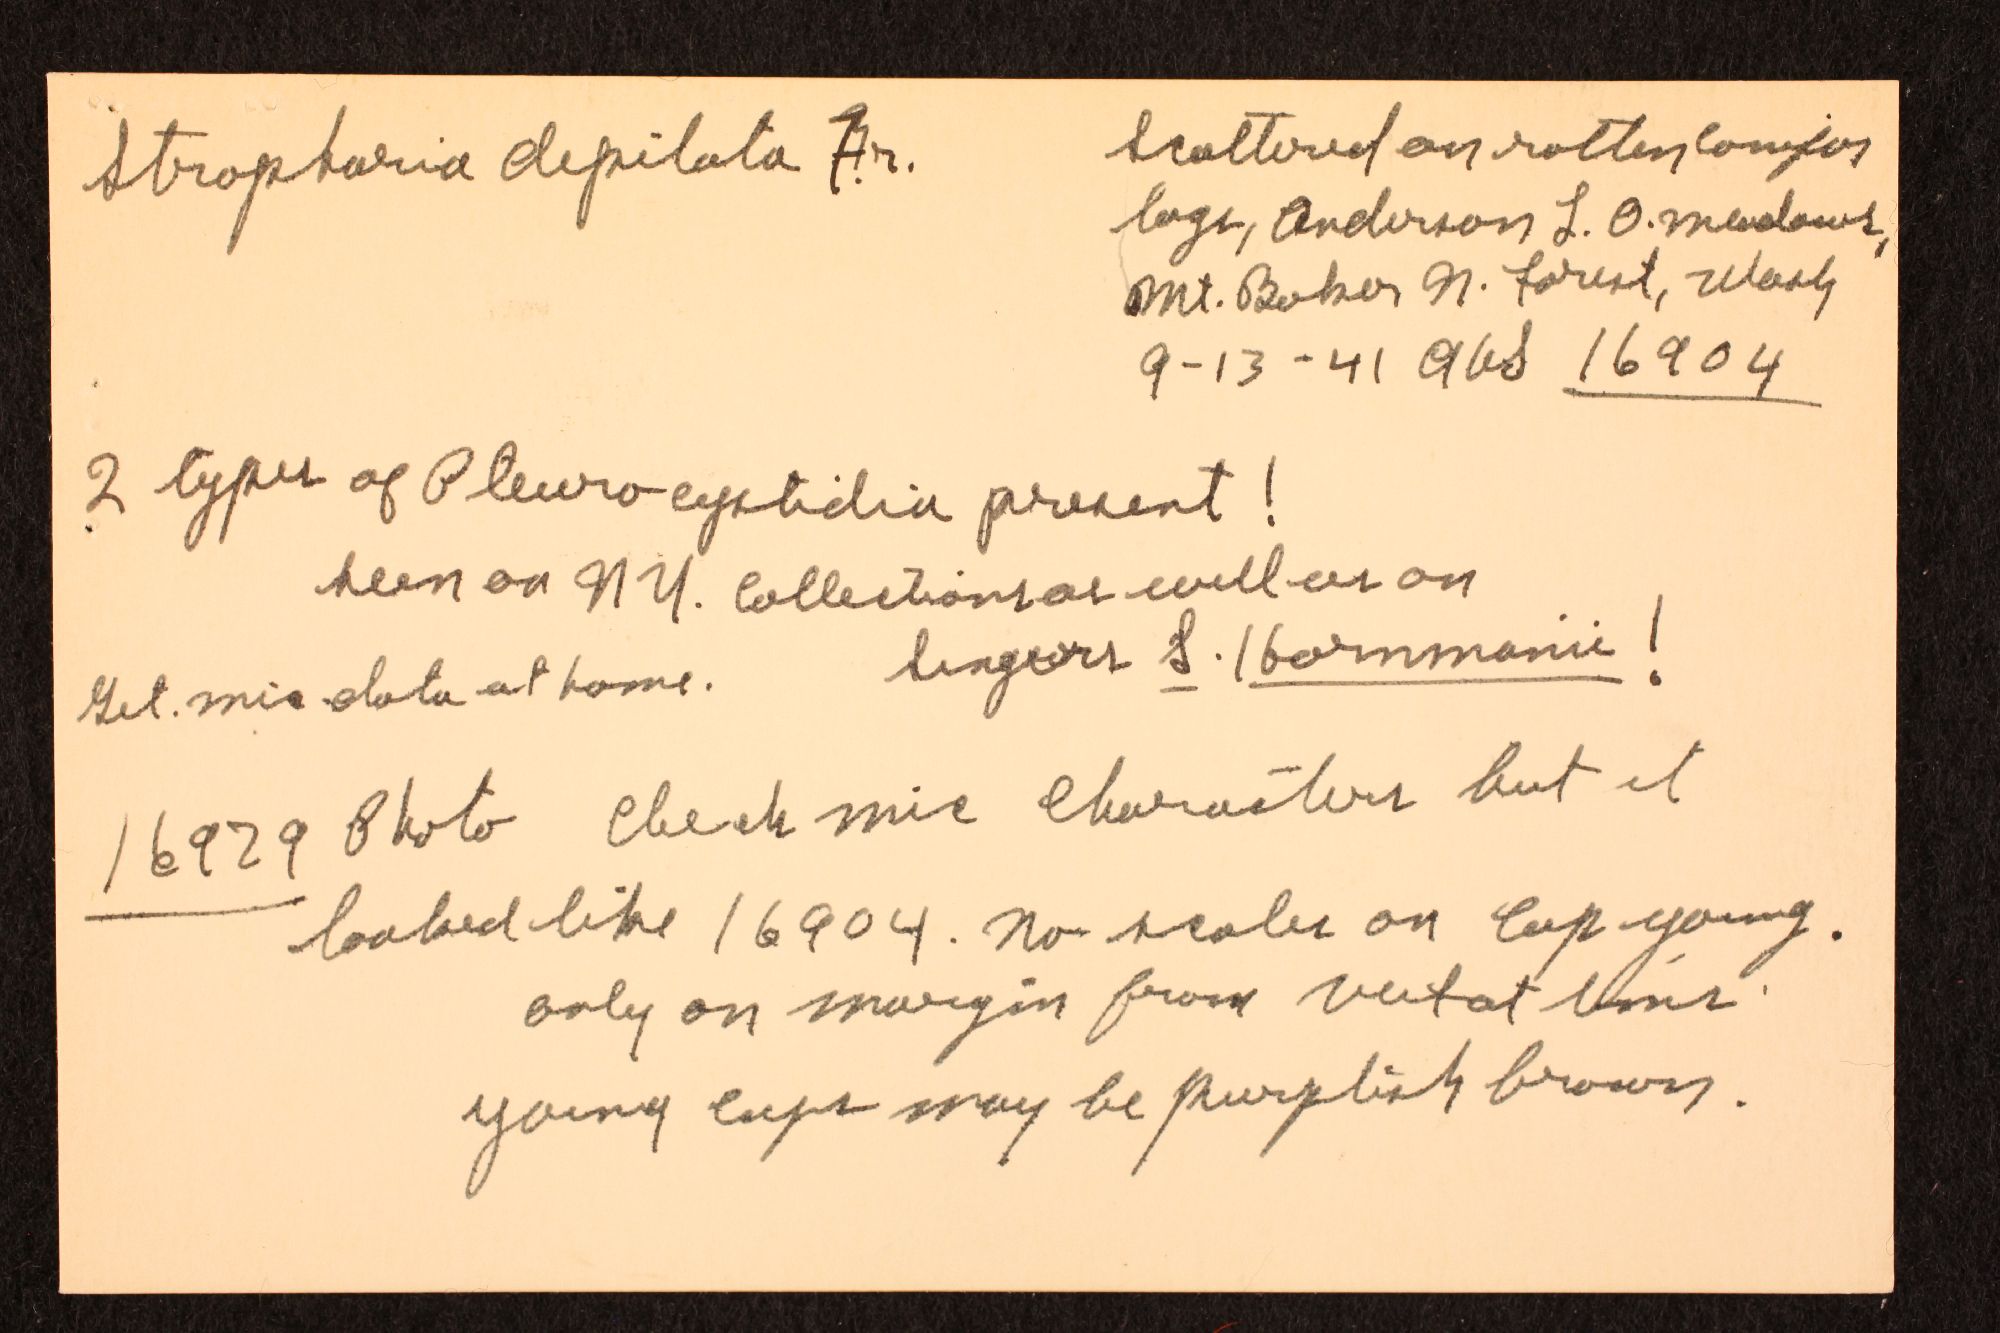 Stropharia depilata Fr.
Scattered on rotten conifer
logs, Anderson L. O. meadows,
Mt. Baker N. Forest, Wash
9-13-41 AHS 16904
2 types of Pleurocystidia present!
seen on N Y. Collections as well as on
Singers S. Hornmanii!
Get. mic data at home.
16929 Photo Check mic Characters but it
looked like 16904. No scales on cap young.
only on margin from veil at times.
young caps may be purplish brown.